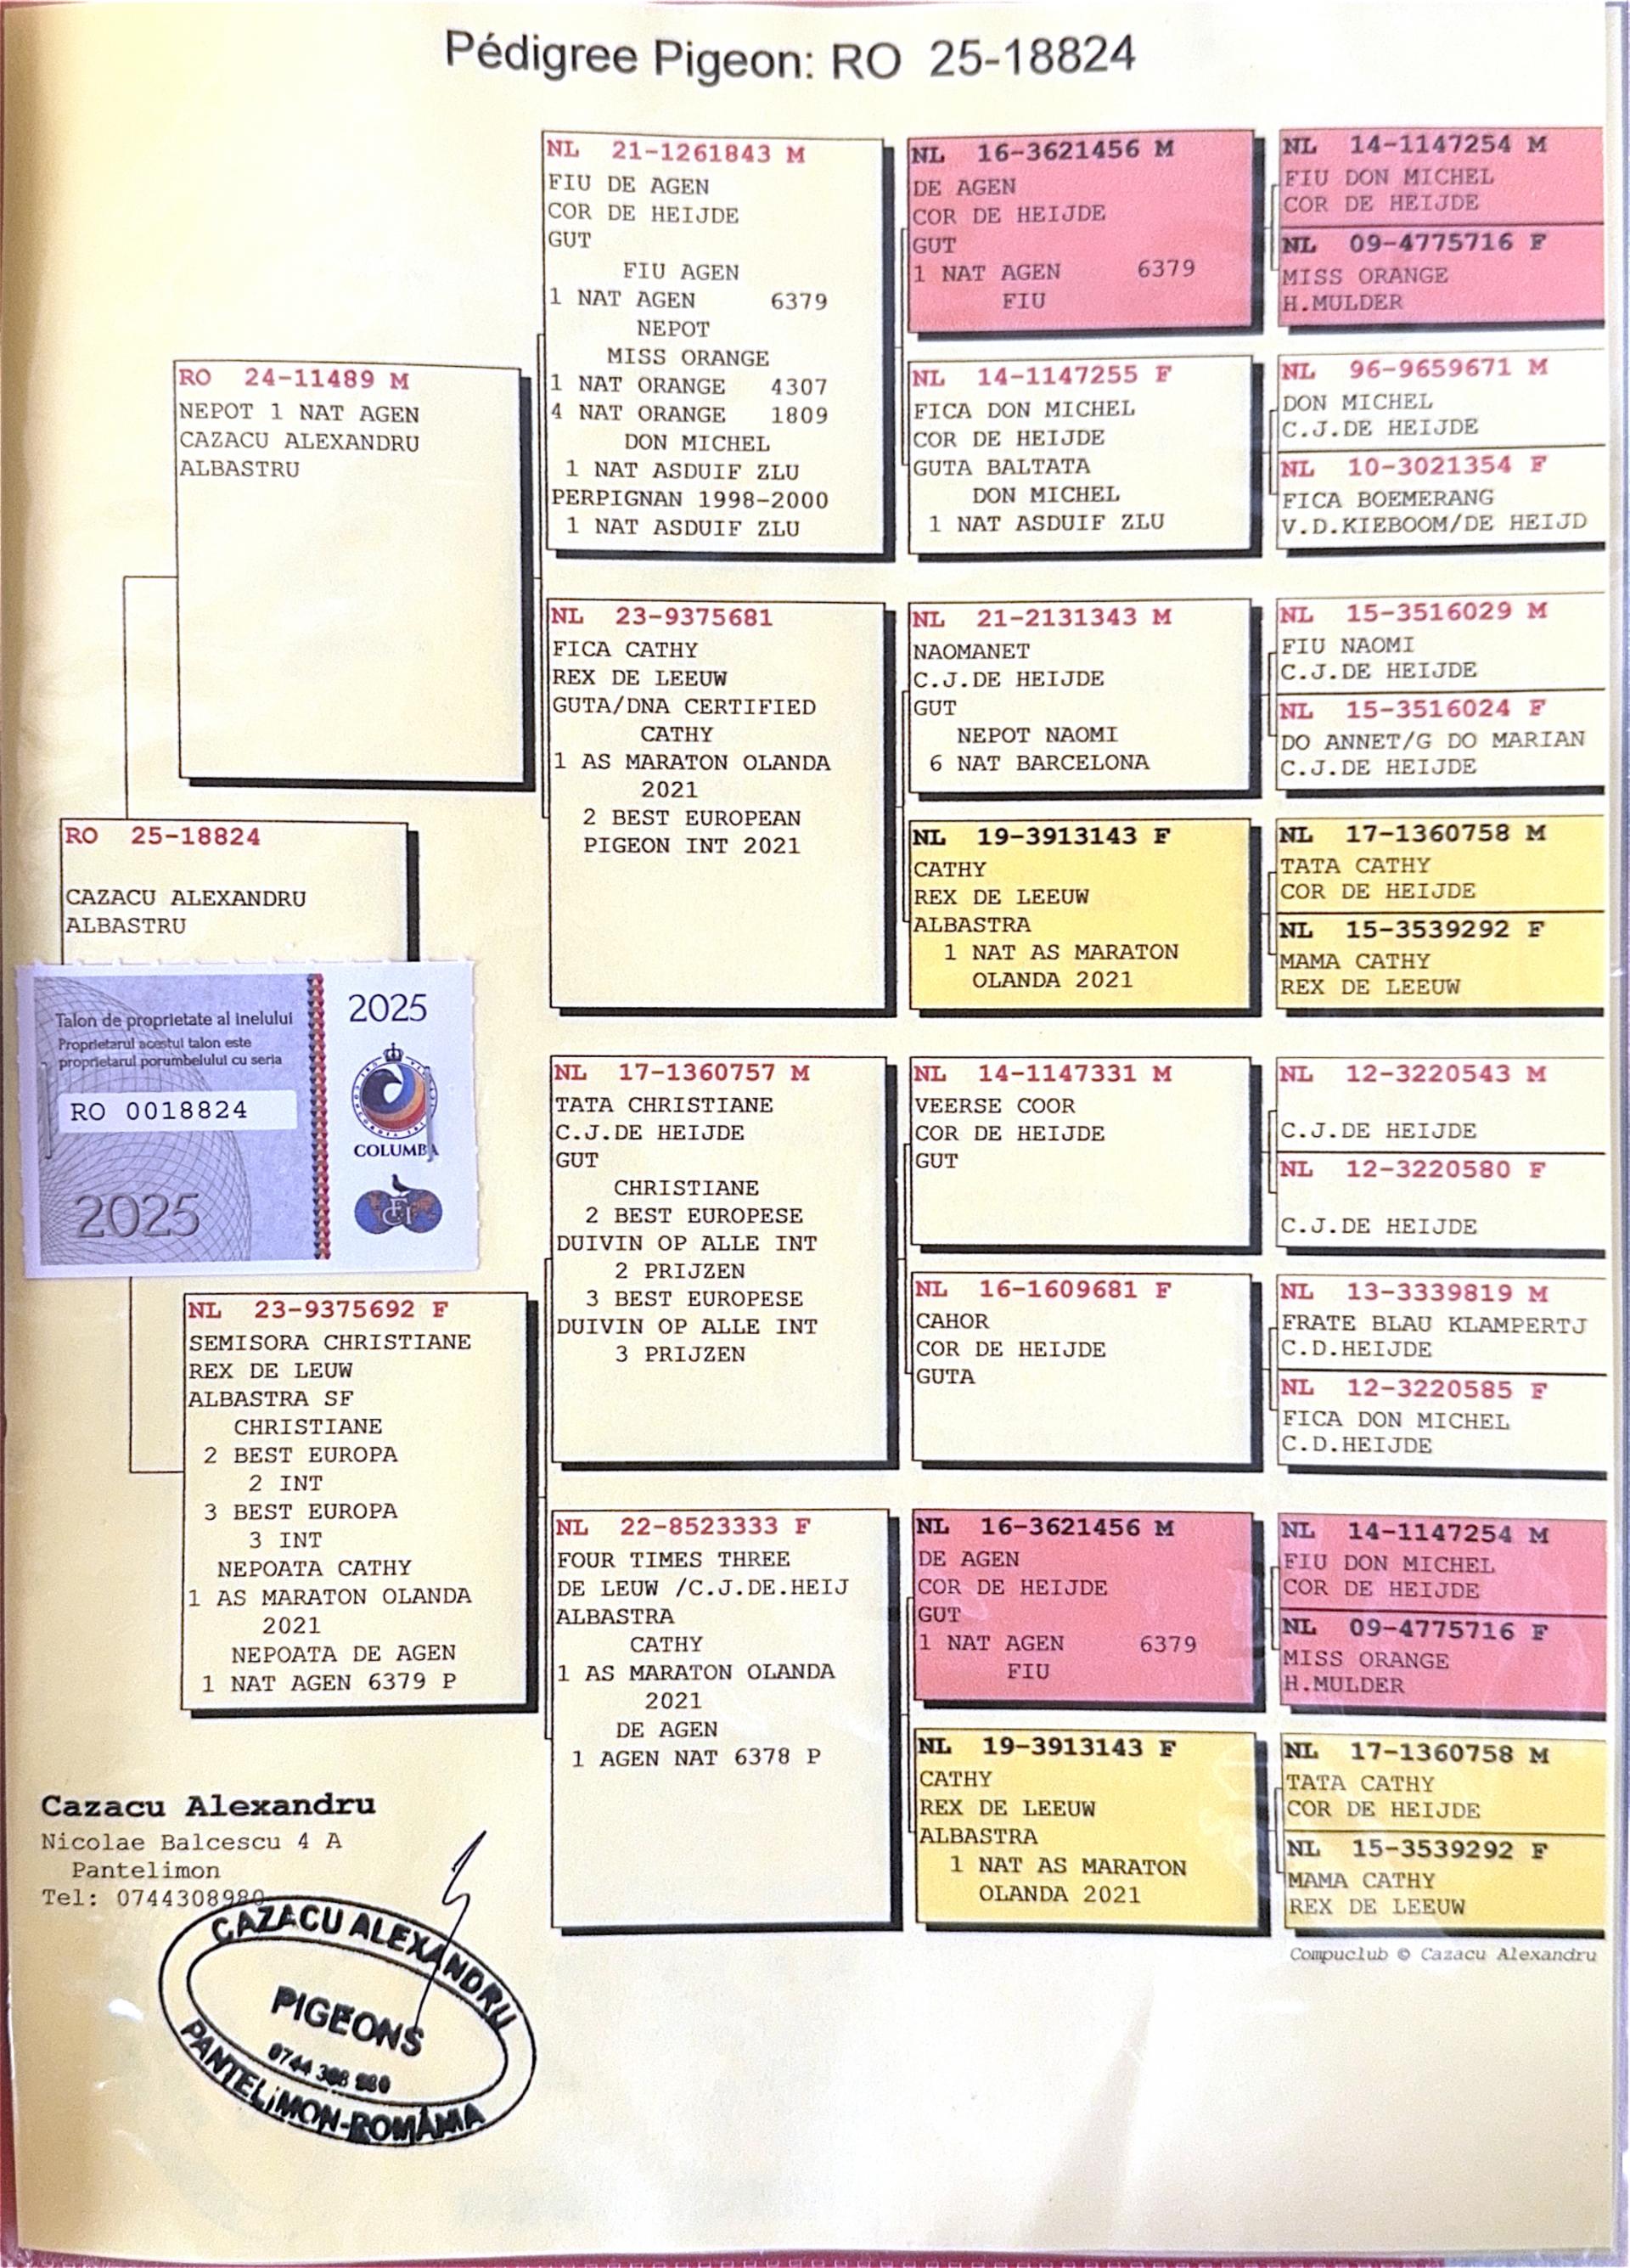 Pédigree Pigeon: RO 25-18824
RO 25-18824
CAZACU ALEXANDRU
ALBASTRU
Talon de proprietate al inelului
Proprietarul acestui talon este
proprietarul porumbelului cu seria
RO 0018824
2025
2025
COLUMBA
FCI
RO 24-11489 M
NEPOT 1 NAT AGEN
CAZACU ALEXANDRU
ALBASTRU
NL 23-9375692 F
SEMISORA CHRISTIANE
REX DE LEUW
ALBASTRA SF
CHRISTIANE
2 BEST EUROPA
2 INT
3 BEST EUROPA
3 INT
NEPOATA CATHY
1 AS MARATON OLANDA
2021
NEPOATA DE AGEN
1 NAT AGEN 6379 P
NL 21-1261843 M
FIU DE AGEN
COR DE HEIJDE
GUT
FIU AGEN
1 NAT AGEN 6379
NEPOT
MISS ORANGE
1 NAT ORANGE 4307
4 NAT ORANGE 1809
DON MICHEL
1 NAT ASDUIF ZLU
PERPIGNAN 1998-2000
1 NAT ASDUIF ZLU
NL 23-9375681
FICA CATHY
REX DE LEEUW
GUTA/DNA CERTIFIED
CATHY
1 AS MARATON OLANDA
2021
2 BEST EUROPEAN
PIGEON INT 2021
NL 17-1360757 M
TATA CHRISTIANE
C.J.DE HEIJDE
GUT
CHRISTIANE
2 BEST EUROPESE
DUIVIN OP ALLE INT
2 PRIJZEN
3 BEST EUROPESE
DUIVIN OP ALLE INT
3 PRIJZEN
NL 22-8523333 F
FOUR TIMES THREE
DE LEUW /C.J.DE.HEIJ
ALBASTRA
CATHY
1 AS MARATON OLANDA
2021
DE AGEN
1 AGEN NAT 6378 P
NL 16-3621456 M
DE AGEN
COR DE HEIJDE
GUT
1 NAT AGEN 6379
FIU
NL 14-1147255 F
FICA DON MICHEL
COR DE HEIJDE
GUTA BALTATA
DON MICHEL
1 NAT ASDUIF ZLU
NL 21-2131343 M
NAOMANET
C.J.DE HEIJDE
GUT
NEPOT NAOMI
6 NAT BARCELONA
NL 19-3913143 F
CATHY
REX DE LEEUW
ALBASTRA
1 NAT AS MARATON
OLANDA 2021
NL 14-1147331 M
VEERSE COOR
COR DE HEIJDE
GUT
NL 16-1609681 F
CAHOR
COR DE HEIJDE
GUTA
NL 16-3621456 M
DE AGEN
COR DE HEIJDE
GUT
1 NAT AGEN 6379
FIU
NL 19-3913143 F
CATHY
REX DE LEEUW
ALBASTRA
1 NAT AS MARATON
OLANDA 2021
NL 14-1147254 M
FIU DON MICHEL
COR DE HEIJDE
NL 09-4775716 F
MISS ORANGE
H.MULDER
NL 96-9659671 M
DON MICHEL
C.J.DE HEIJDE
NL 10-3021354 F
FICA BOEMERANG
V.D.KIEBOOM/DE HEIJD
NL 15-3516029 M
FIU NAOMI
C.J.DE HEIJDE
NL 15-3516024 F
DO ANNET/G DO MARIAN
C.J.DE HEIJDE
NL 17-1360758 M
TATA CATHY
COR DE HEIJDE
NL 15-3539292 F
MAMA CATHY
REX DE LEEUW
NL 12-3220543 M
C.J.DE HEIJDE
NL 12-3220580 F
C.J.DE HEIJDE
NL 13-3339819 M
FRATE BLAU KLAMPERTJ
C.D.HEIJDE
NL 12-3220585 F
FICA DON MICHEL
C.D.HEIJDE
NL 14-1147254 M
FIU DON MICHEL
COR DE HEIJDE
NL 09-4775716 F
MISS ORANGE
H.MULDER
NL 17-1360758 M
TATA CATHY
COR DE HEIJDE
NL 15-3539292 F
MAMA CATHY
REX DE LEEUW
Compuclub © Cazacu Alexandru
Cazacu Alexandru
Nicolae Balcescu 4 A
Pantelimon
Tel: 0744308980
CAZACU ALEXANDRU
PIGEONS
0744 308 980
PANTELIMON-ROMÂNIA